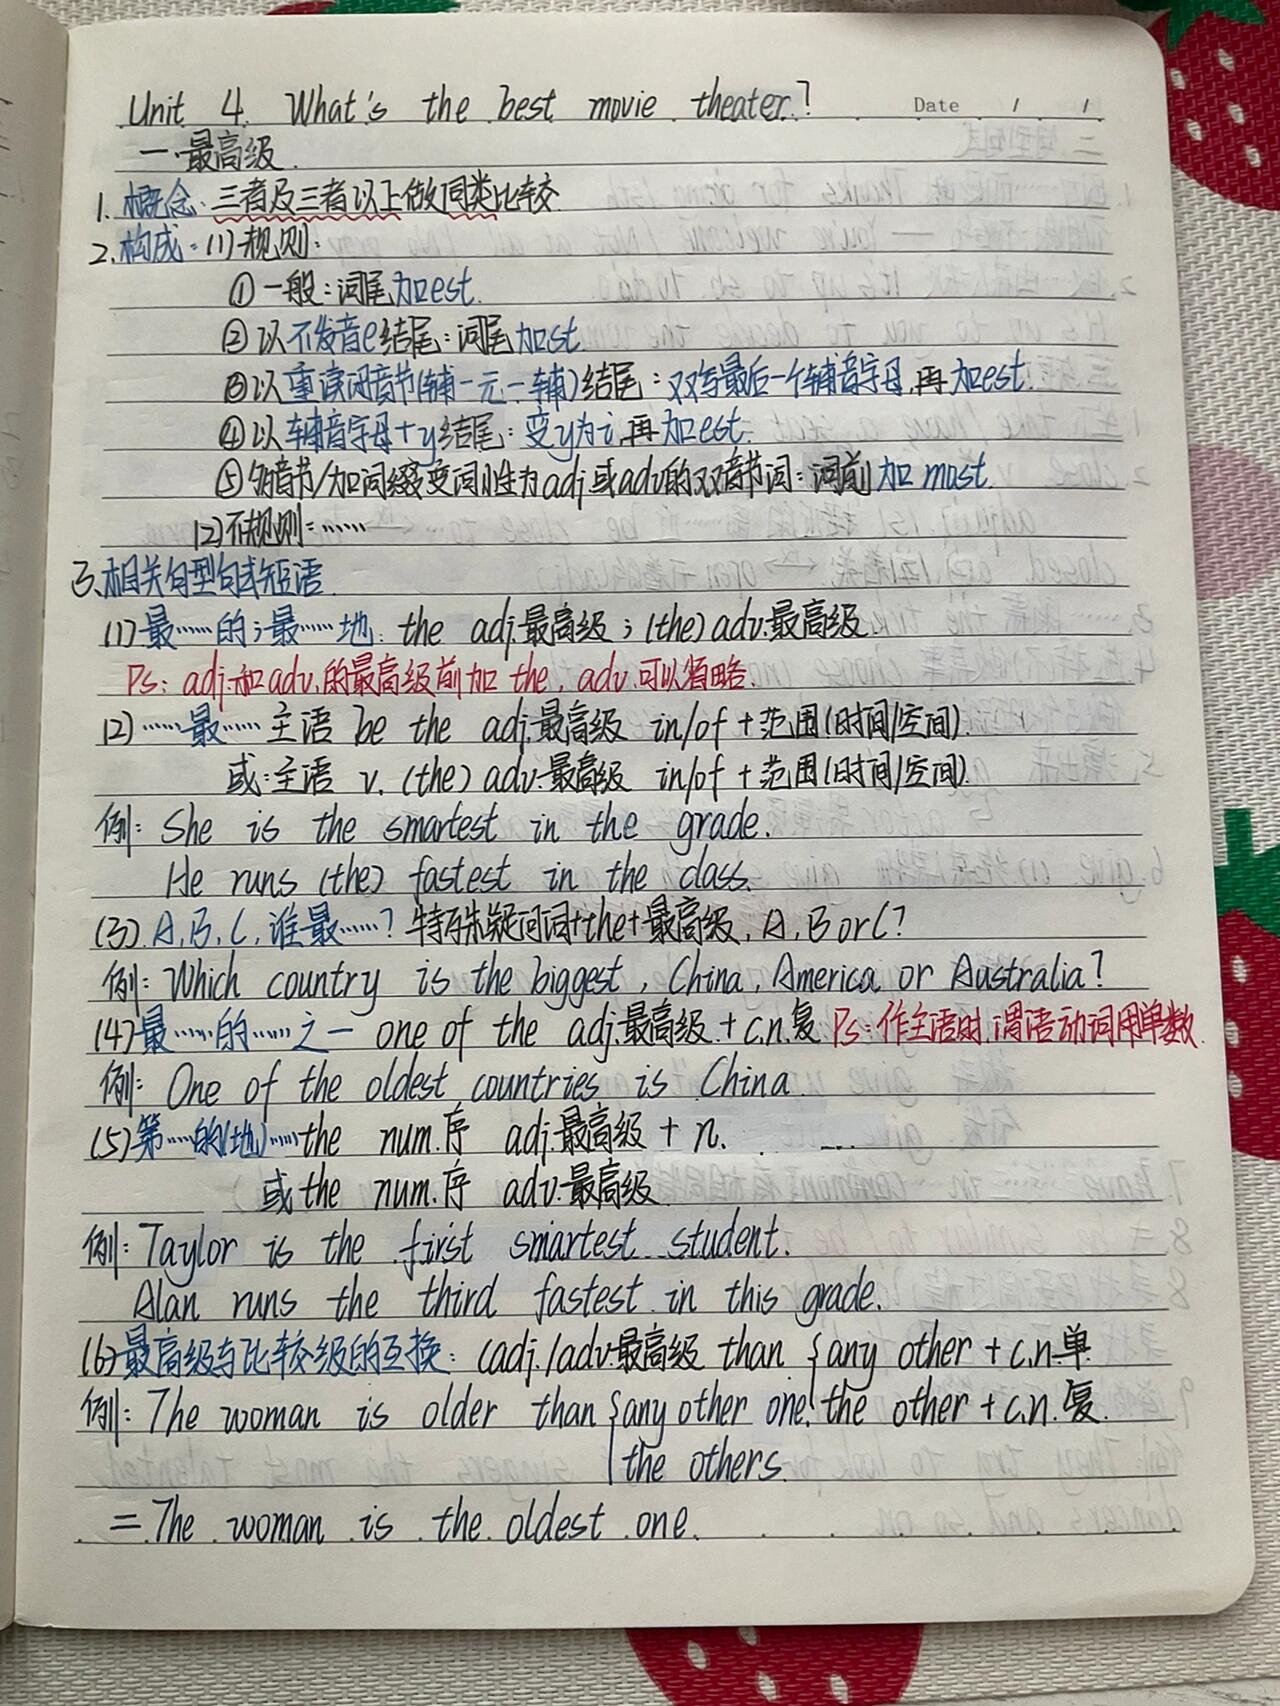 Unit 4. What's the best movie theater?
Date / /
一.最高级.
1.概念:三者及三者以上做同类比较
2.构成:(1)规则:
①一般:词尾加est.
②以不发音e结尾:词尾加st.
③以重读闭音节(辅一元一辅)结尾:双写最后一个辅音字母,再加est.
④以辅音字母+y结尾:变y为i,再加est.
⑤多音节/加词缀变词性为adj.或adv.的双音节词:词前加most.
(2)不规则:……
3.相关句型句或短语
(1)最……的;最……地: the adj.最高级;(the)adv.最高级.
Ps: adj.和adv.的最高级前加the, adv.可以省略.
(2)……最…… 主语 be the adj.最高级 in/of +范围(时间/空间).
或:主语 v. (the) adv.最高级 in/of +范围(时间/空间).
例: She is the smartest in the grade.
He runs (the) fastest in the class.
(3).A,B,C,谁最……?特殊疑问词+the+最高级,A,B or C?
例: Which country is the biggest, China, America or Australia?
(4)最……的……之一 one of the adj.最高级+c.n.复 Ps:作主语时,谓语动词用单数.
例: One of the oldest countries is China.
(5)第……的(地)……the num.序 adj.最高级 + n. ...
或 the num.序 adv.最高级
例: Taylor is the first smartest student.
Alan runs the third fastest in this grade.
(6)最高级与比较级的互换: (adj./adv.最高级 than {any other + c.n.单
例: The woman is older than {any other one. {the other + c.n.复.
the others.
= The woman is the oldest one.